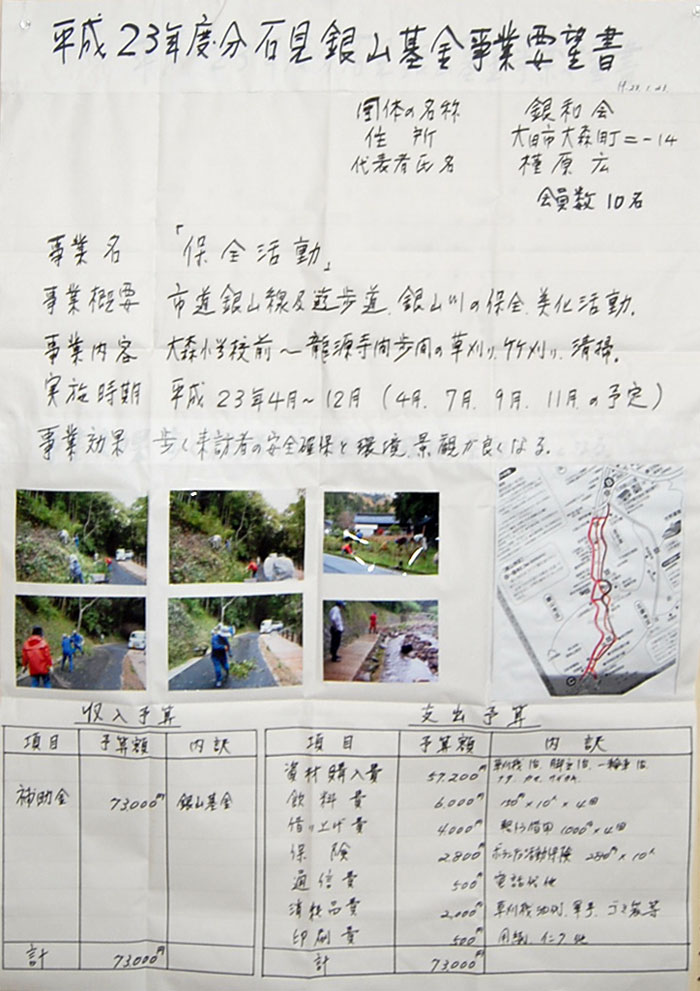 平成23年度分石見銀山基金事業要望書
H.23.1.23.
団体の名称 銀和会
住所 大田市大森町ニ-14
代表者氏名 檀原広
会員数10名
事業名 「保全活動」
事業概要 市道銀山線及遊歩道、銀山川の保全、美化活動。
事業内容 大森小学校前～龍源寺間歩間の草刈り、竹刈り、清掃。
実施時期 平成23年4月～12月(4月、7月、9月、11月の予定)
事業効果 歩く来訪者の安全確保と環境、景観が良くなる。
収入予算
項目 予算額 内訳
補助金 73,000円 銀山基金
計 73,000円
支出予算
項目 予算額 内訳
資材購入費 57,200円 草刈機
飲料費 6,000円 150円×10人×4回
借り上げ費 4,000円 1000円×4回
保険 2,800円 ボランティア活動保険 280円×10人
通信費 500円 電話代他
消耗品費 2,000円 草刈機油、軍手、ゴミ袋等
印刷費 500円 用紙、インク他
計 73,000円